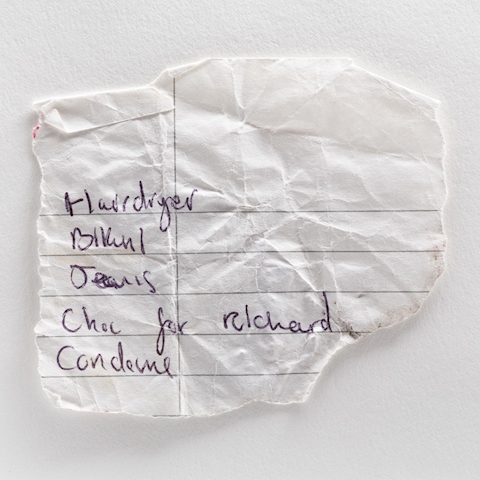 Hairdryer
Bikini
Jeans
Choc for richard
Condoms